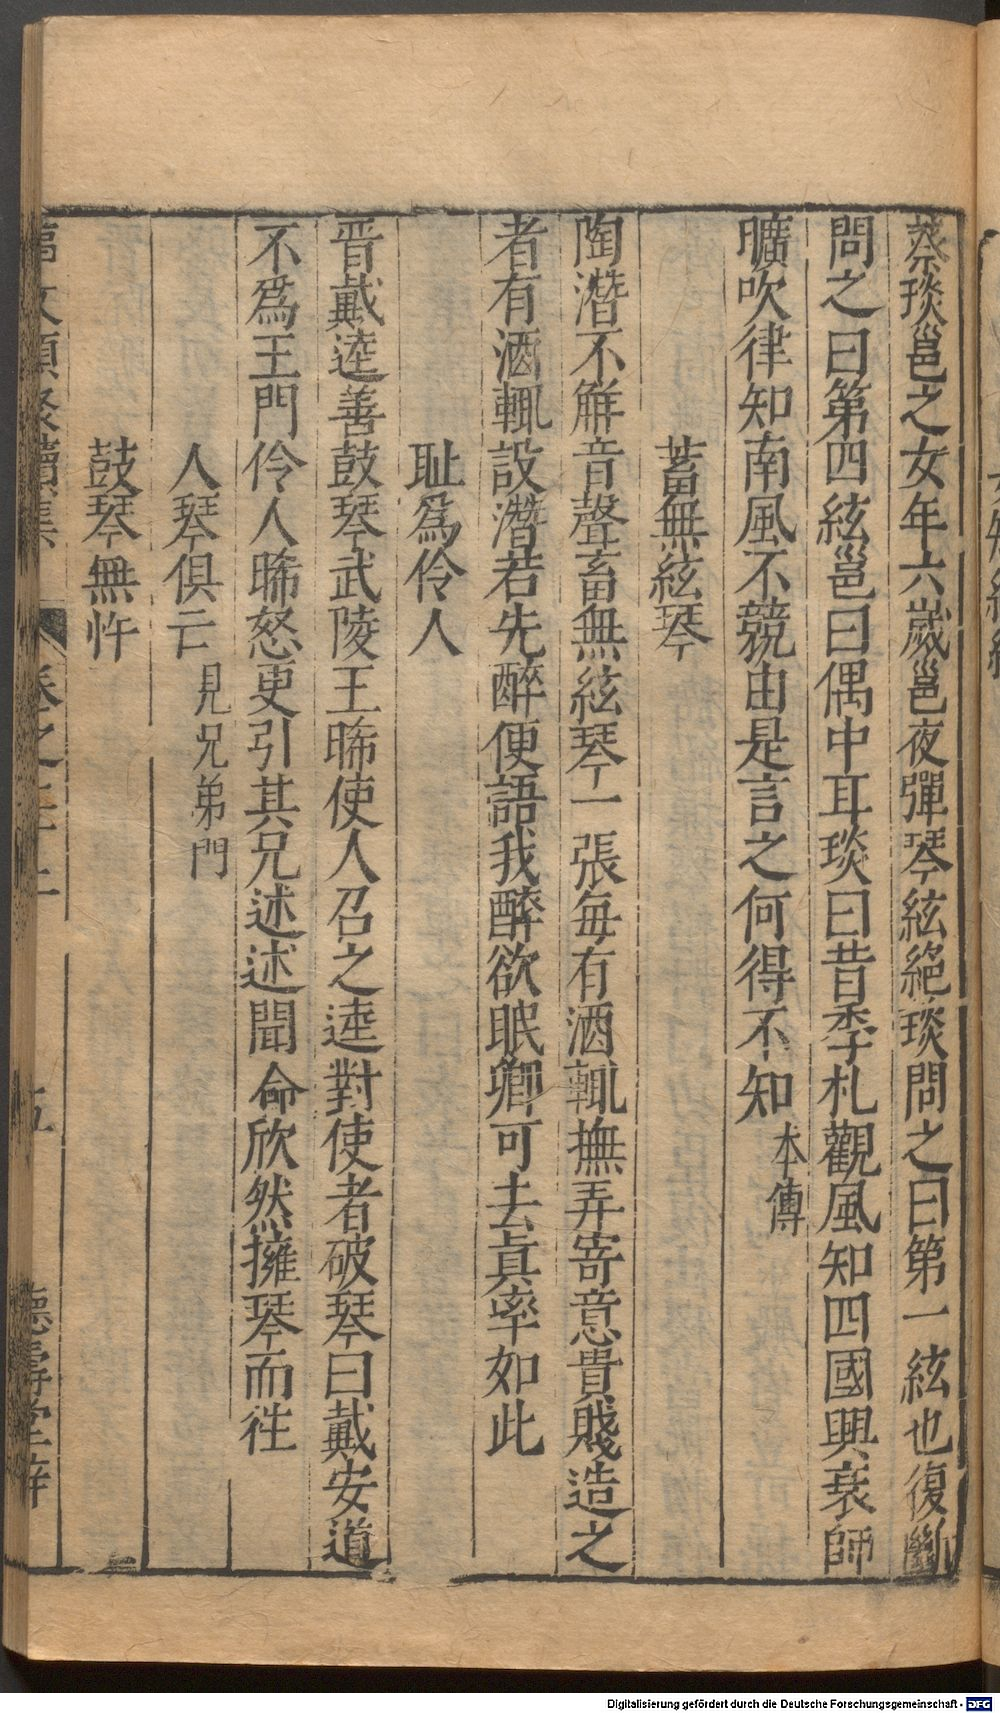 蔡琰邕之女年六歲邕夜彈琴絃絕琰問之曰第一絃也復斷
問之曰第四絃邕曰偶中耳琰曰昔季札觀風知四國興衰師
曠吹律知南風不競由是言之何得不知本傳
蓄無絃琴
陶潛不觧音聲畜無絃琴一張毎有酒輒撫弄寄意貴賤造之
者有酒輒設潛若先醉便語我醉欲眠卿可去眞率如此
耻爲伶人
晉戴逵善鼓琴武陵王晞使人召之逵對使者破琴曰戴安道
不爲王門伶人晞怒更引其兄述述聞命欣然擁琴而徃
人琴俱亡見兄弟門
鼓琴無忤
事文類聚續集 卷之二十二 五 德壽堂梓
Digitalisierung gefördert durch die Deutsche Forschungsgemeinschaft - DFG